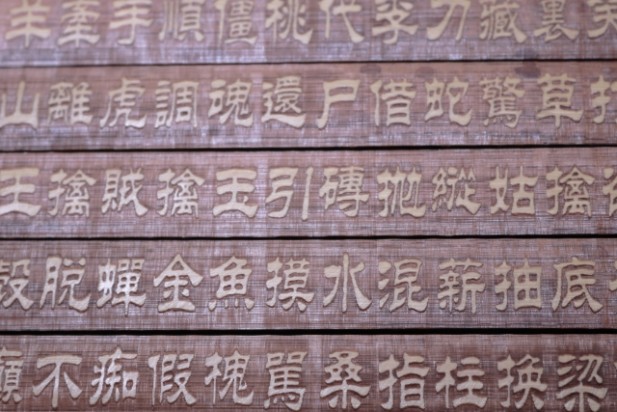 笑裏藏刀李代桃僵順手牽羊
打草驚蛇借尸還魂調虎離山
擒姑縱拋磚引玉擒賊擒王
底抽薪混水摸魚金蟬脫殼
梁換柱指桑罵槐假痴不癲